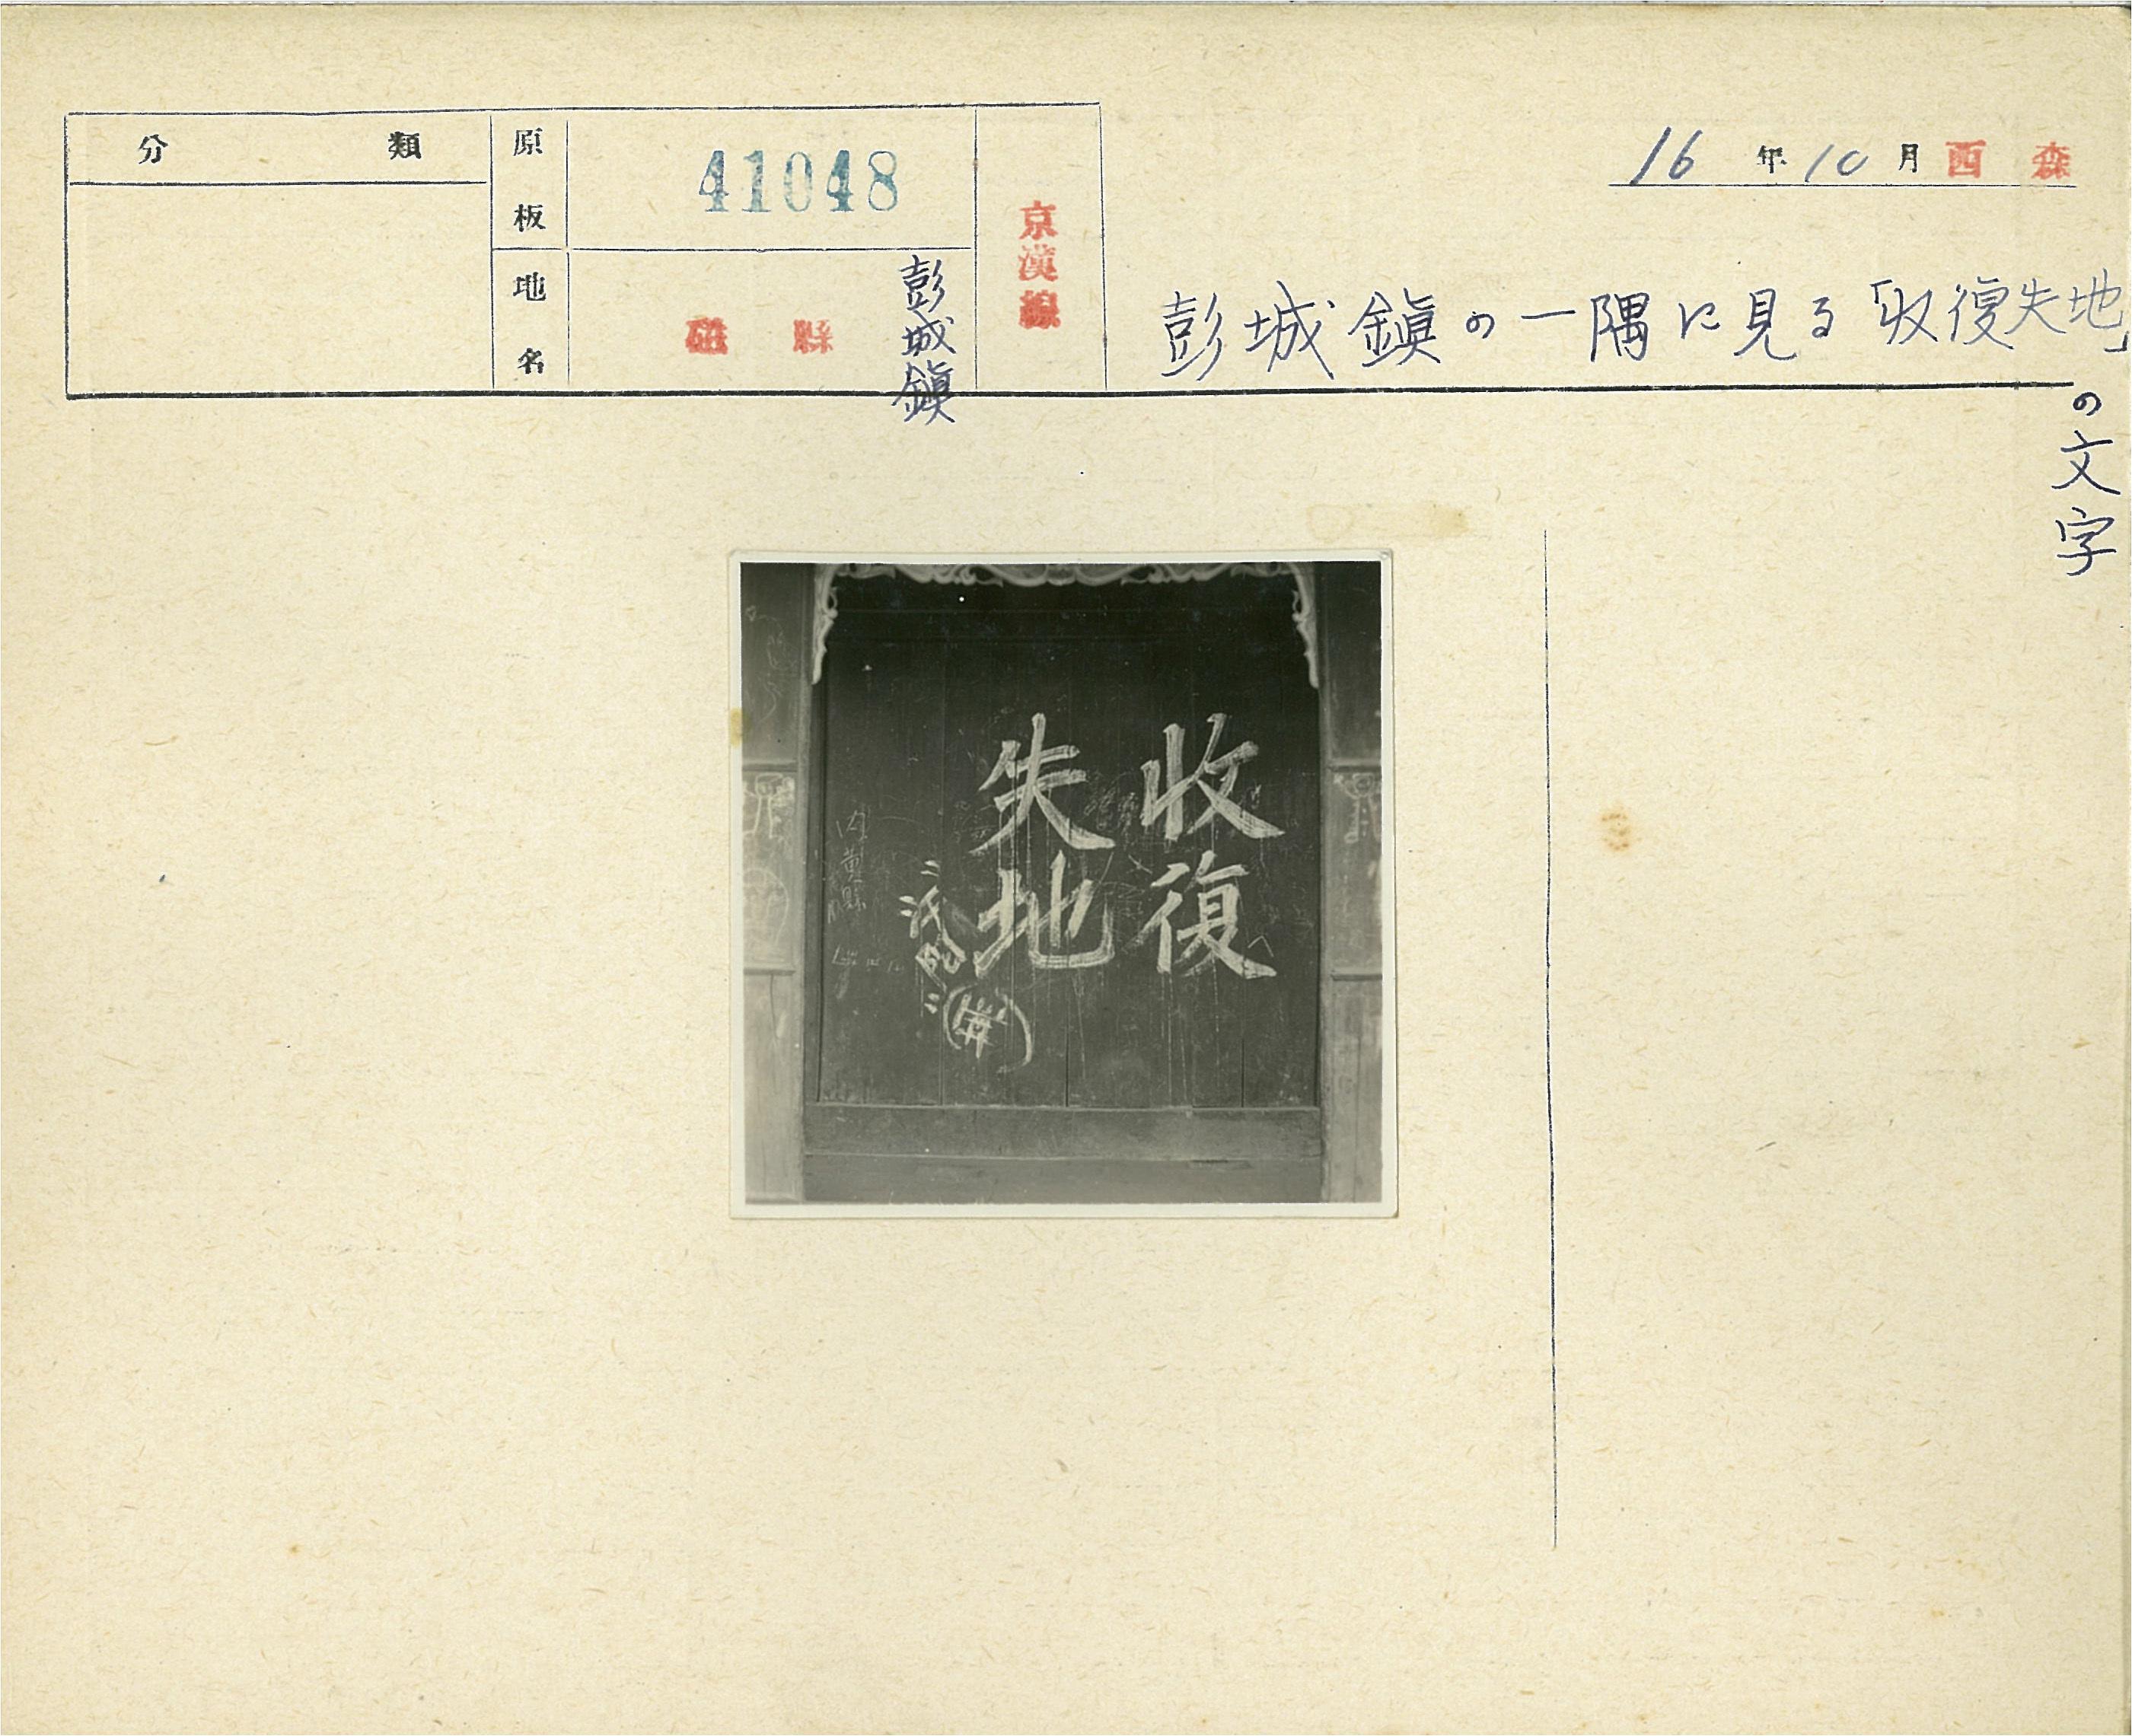 分類
原板
41048
地名
磁縣
彭城鎭
京漢線
16年10月 西森
彭城鎭の一隅に見る「收復失地」の文字
收復
失地
黄縣